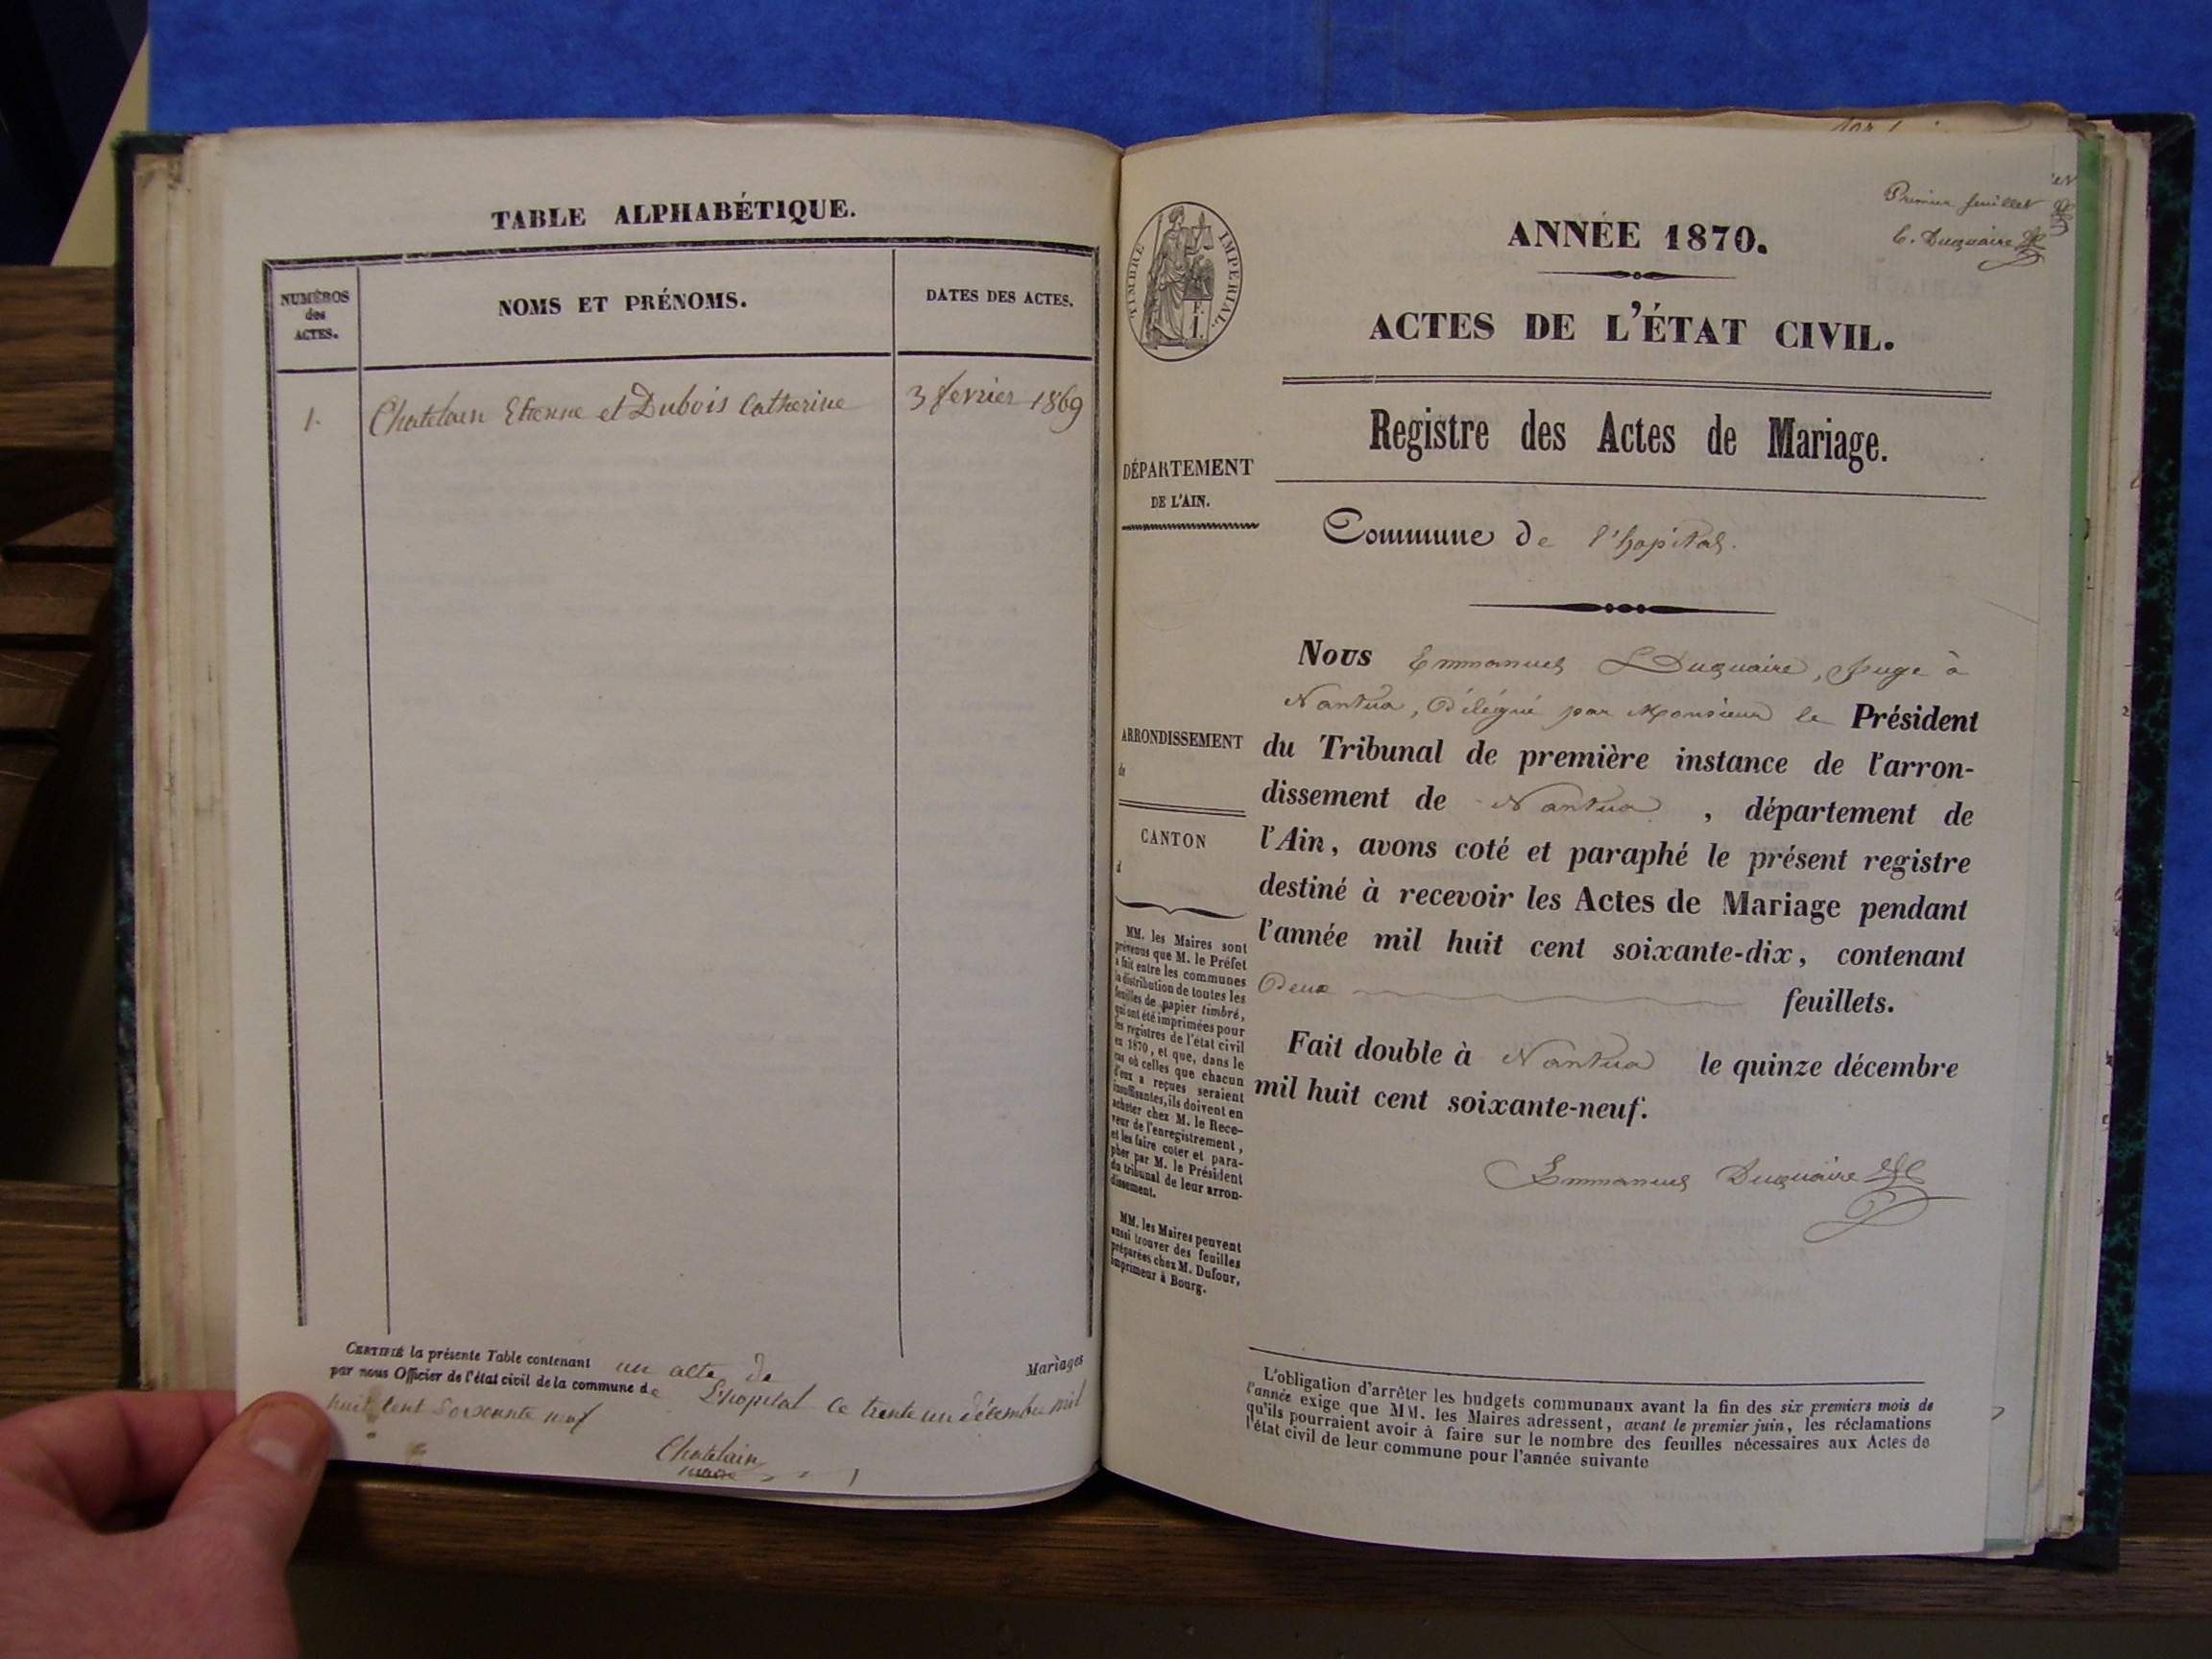 TABLE ALPHABÉTIQUE.
NUMÉROS
des
ACTES.
NOMS ET PRÉNOMS.
DATES DES ACTES.
1. Chatelain Etienne et Dubois Catherine 3 fevrier 1869
CERTIFIÉ la présente Table contenant un acte de Mariages
par nous Officier de l'état civil de la commune de L'hopital ce trente un décembre mil
huit cent soixante neuf
Chatelain
maire
Premier feuillet
E. Duquaire
TIMBRE IMPERIAL.
ANNÉE 1870.
ACTES DE L'ÉTAT CIVIL.
Registre des Actes de Mariage.
DÉPARTEMENT
DE L'AIN.
Commune de l'hopital.
Nous Emmanuel Duquaire, Juge à
Nantua, Délégué par Monsieur le Président
du Tribunal de première instance de l'arron-
dissement de Nantua, département de
l'Ain, avons coté et paraphé le présent registre
destiné à recevoir les Actes de Mariage pendant
l'année mil huit cent soixante-dix, contenant
Deux feuillets.
Fait double à Nantua le quinze décembre
mil huit cent soixante-neuf.
Emmanuel Duquaire
ARRONDISSEMENT
de
CANTON
d
MM. les Maires sont
prévenus que M. le Préfet
a fait entre les communes
la distribution de toutes les
feuilles de papier timbré,
qui ont été imprimées pour
les registres de l'état civil
en 1870, et que, dans le
cas où celles que chacun
d'eux a reçues seraient
insuffisantes, ils doivent en
acheter chez M. le Rece-
veur de l'enregistrement,
et les faire coter et para-
pher par M. le Président
du tribunal de leur arron-
dissement.
MM. les Maires peuvent
aussi trouver des feuilles
préparées chez M. Dufour,
imprimeur à Bourg.
L'obligation d'arrêter les budgets communaux avant la fin des six premiers mois de
l'année exige que MM. les Maires adressent, avant le premier juin, les réclamations
qu'ils pourraient avoir à faire sur le nombre des feuilles nécessaires aux Actes de
l'état civil de leur commune pour l'année suivante